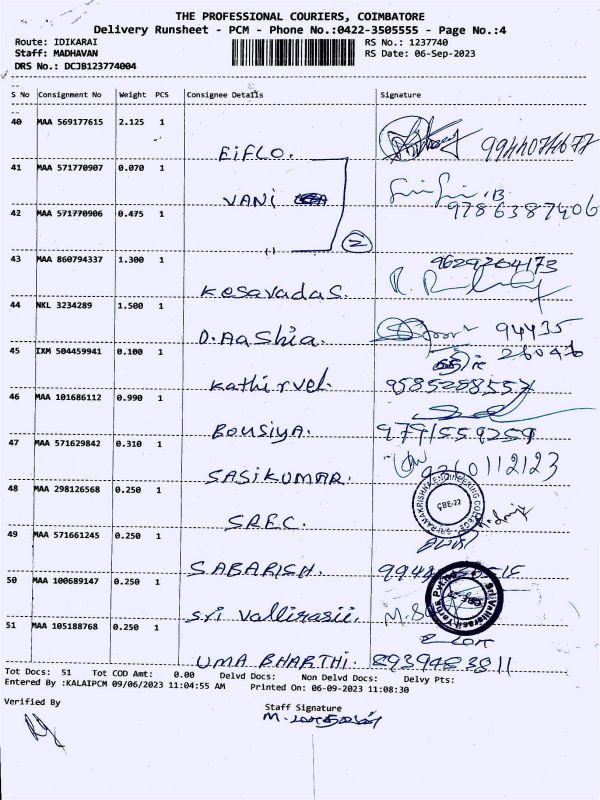 THE PROFESSIONAL COURIERS, COIMBATORE
Delivery Runsheet - PCM - Phone No.:0422-3505555 - Page No.:4
Route: IDIKARAI
RS No.: 1237740
Staff: MADHAVAN
RS Date: 06-Sep-2023
DRS No.: DCJB123774004
S No Consignment No Weight PCS Consignee Details Signature
40 MAA 569177615 2.125 1
EiFLO. 9944074677
41 MAA 571770907 0.070 1
VANi
9786387406
42 MAA 571770906 0.475 1
2
43 MAA 860794337 1.300 1 9629264173
Kesavadas.
44 NKL 3234289 1.500 1
D.Aashia. 94435
26046
45 IXM 504459941 0.100 1
Kathirvel. 9585288557
46 MAA 101686112 0.990 1
Bousiya. 9791559259
47 MAA 571629842 0.310 1
SASIKUMAR. 9360112123
48 MAA 298126568 0.250 1
SREC. SRI RAMAKRISHNA ENGINEERING COLLEGE CBE-22
49 MAA 571661245 0.250 1
SABARISH.
50 MAA 100689147 0.250 1
Sri Vallirasii.
51 MAA 105188768 0.250 1
UMA BHARTHI. 8939483811
Tot Docs: 51 Tot COD Amt: 0.00 Delvd Docs: Non Delvd Docs: Delvy Pts:
Entered By :KALAIPCM 09/06/2023 11:04:55 AM Printed On: 06-09-2023 11:08:30
Verified By Staff Signature